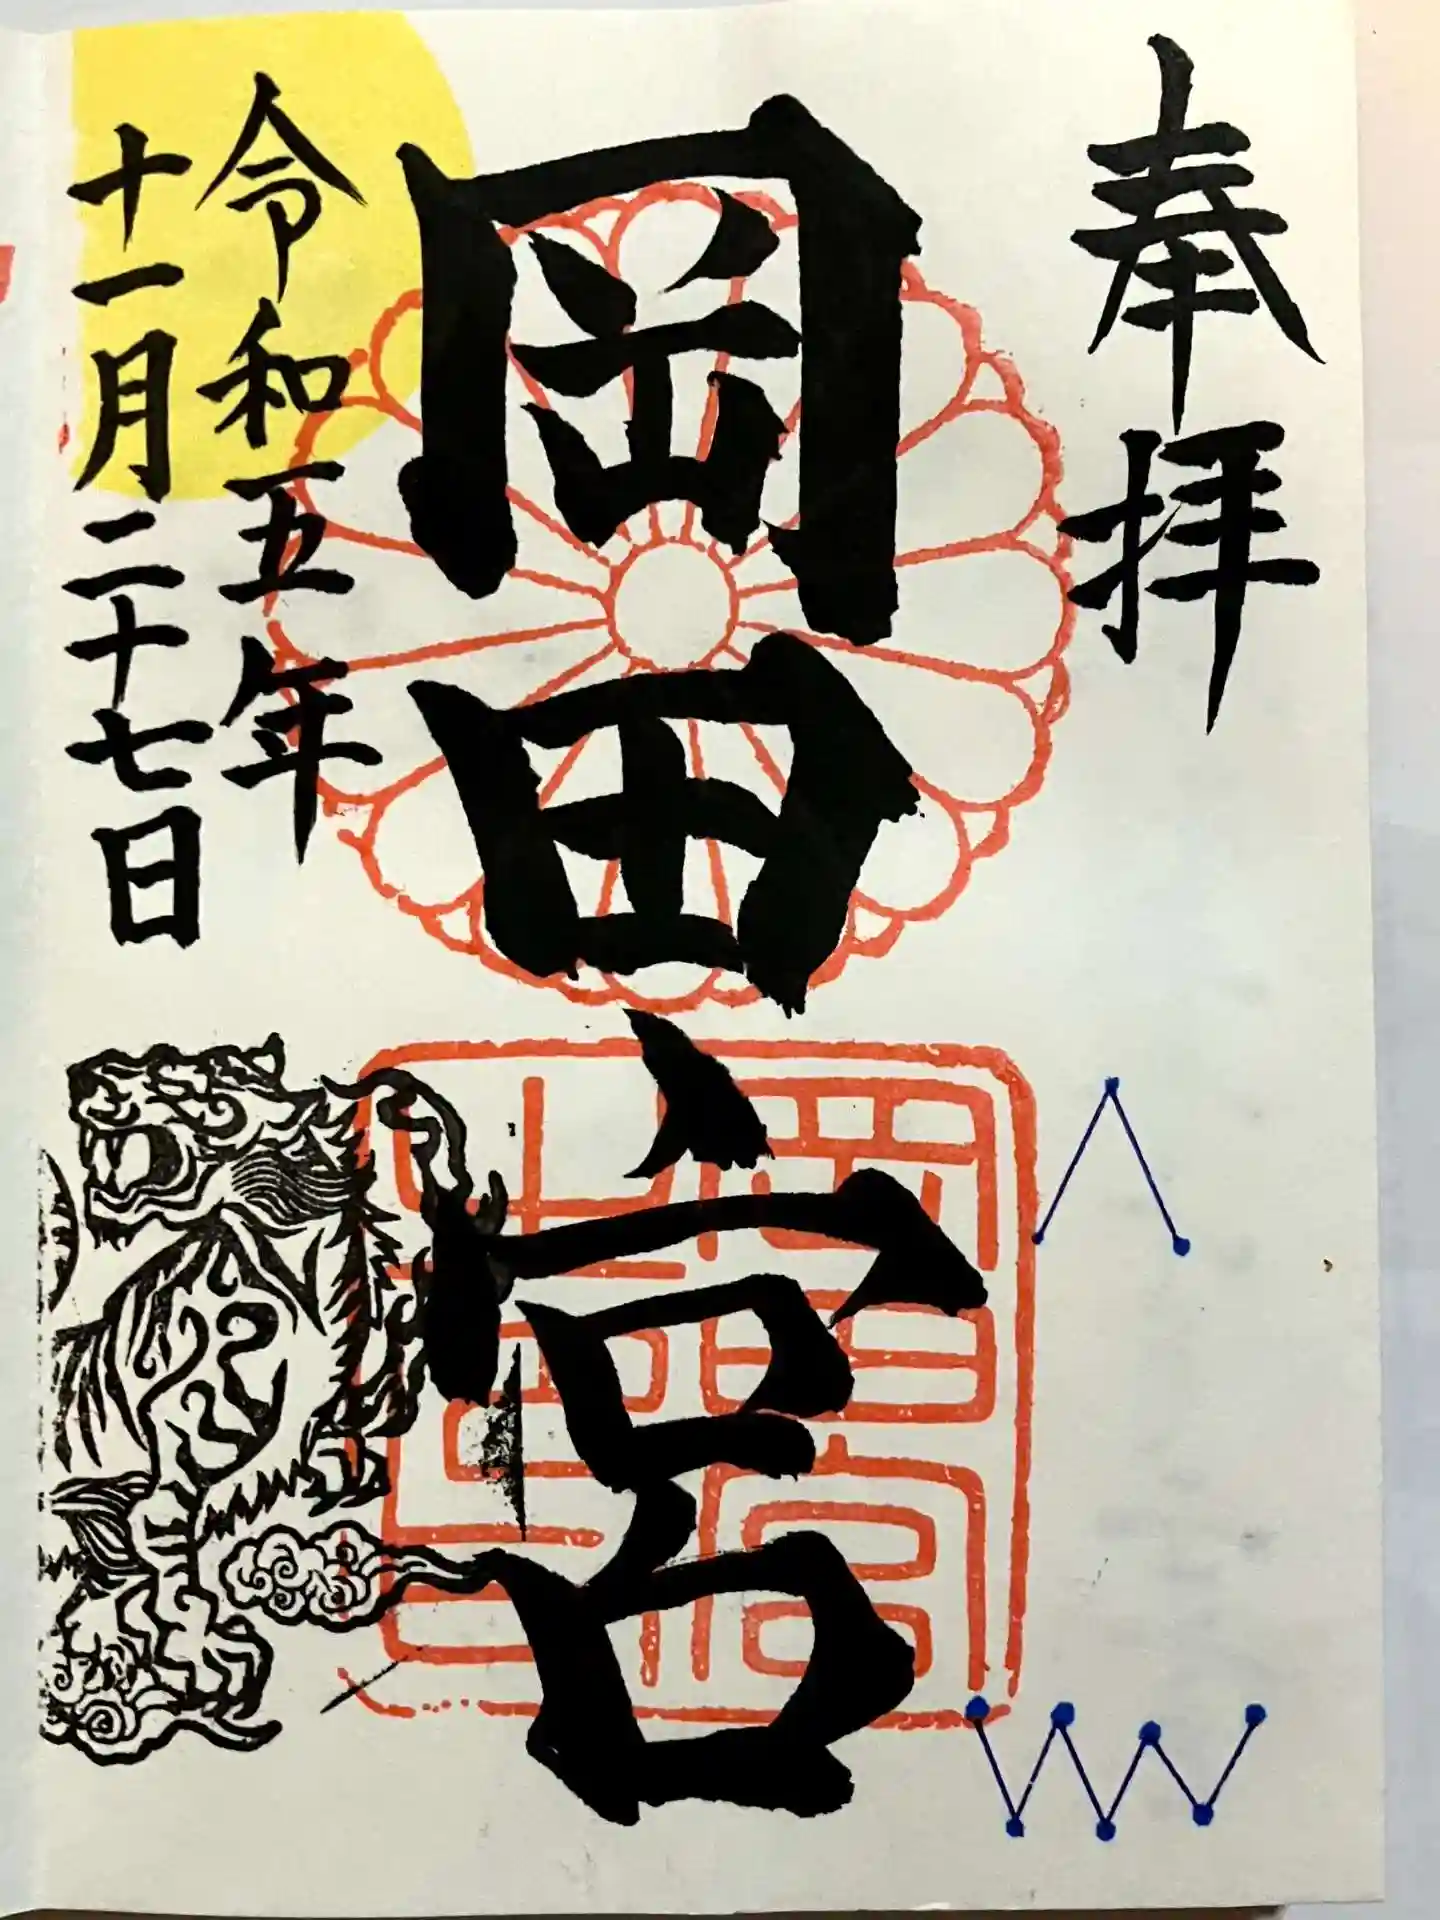 奉拝
岡田宮
令和五年
十一月二十七日